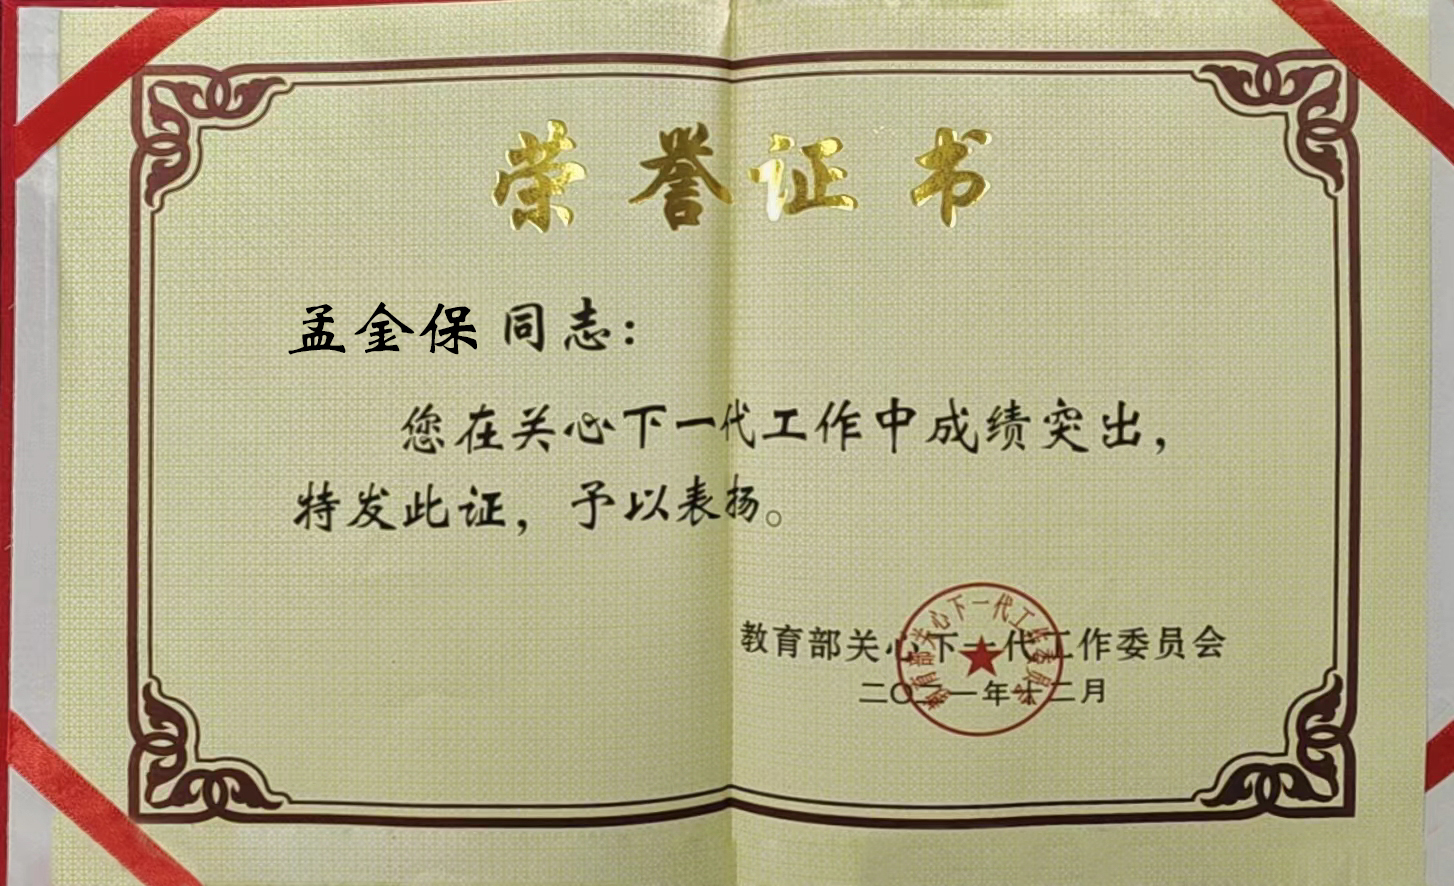 荣誉证书
孟金保 同志：
您在关心下一代工作中成绩突出，
特发此证，予以表扬。
教育部关心下一代工作委员会
二〇二一年十二月
教育部关心下一代工作委员会